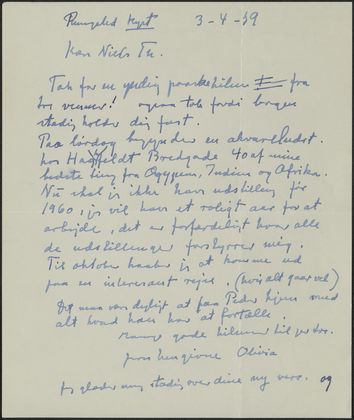 Rungsted Kyst 3-4-59
Kære Niels Th.
Tak for en yndig paaskehilsen fra
vennen! ogsaa tak fordi bogen
stadig holder dig fast.
Paa lørdag begynder en akvareludst.
hos Hatzfeldt Bredgade 40 af mine
bedste ting fra Ægypten, Indien og Afrika.
Nu skal jeg ikke have udstilling før
1960, jeg vil have et roligt aar for at
arbejde, det er forfærdeligt hvor alle
de udstillinger forstyrrer mig.
Til oktober haaber jeg at komme ud
paa en interessant rejse. (hvis alt gaar vel)
Det maa være dejligt at faa Peder hjem med
alt hvad han har at fortælle.
mange gode hilsner til jer to.
fra hengivne Olivia
Jeg glæder mig stadig over dine ny vers. og